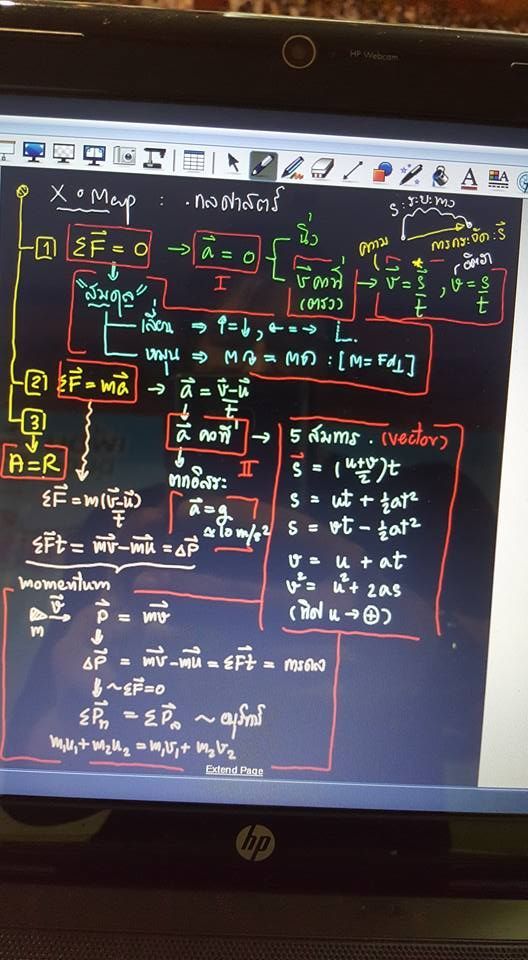 HP Webcam
X-O Map : กลศาสตร์
S : ระยะทาง
การกระจัด : S⃗
[1] ΣF⃗ = 0 → a⃗ = 0 { นิ่ง
v⃗ คงที่ (ตรง) → v⃗ = s⃗/t , v = s/t
ความ
อัตรา
I
"สมดุล"
เลื่อน ⇒ ↑=↓, ←=→
หมุน ⇒ Mท = Mต : [M = Fd⊥]
[2] ΣF⃗ = ma⃗ → a⃗ = (v⃗-u⃗)/t
[3]
A = R
a⃗ คงที่ → 5 สมการ . (vector)
II
ตกอิสระ
a⃗ = g
≈ 10 m/s²
s⃗ = ((u+v)/2)t
s = ut + ½at²
s = vt - ½at²
v = u + at
v² = u² + 2as
(ทิศ u → ⊕)
ΣF⃗ = m(v⃗-u⃗)/t
ΣF⃗t = mv⃗ - mu⃗ = ΔP⃗
momentum
m v⃗ P⃗ = mv⃗
ΔP⃗ = mv⃗ - mu⃗ = ΣF⃗t = การดล
↓ ~ ΣF⃗=0
ΣP⃗ก = ΣP⃗ล ~ อนุรักษ์
m₁u₁ + m₂u₂ = m₁v₁ + m₂v₂
Extend Page
hp